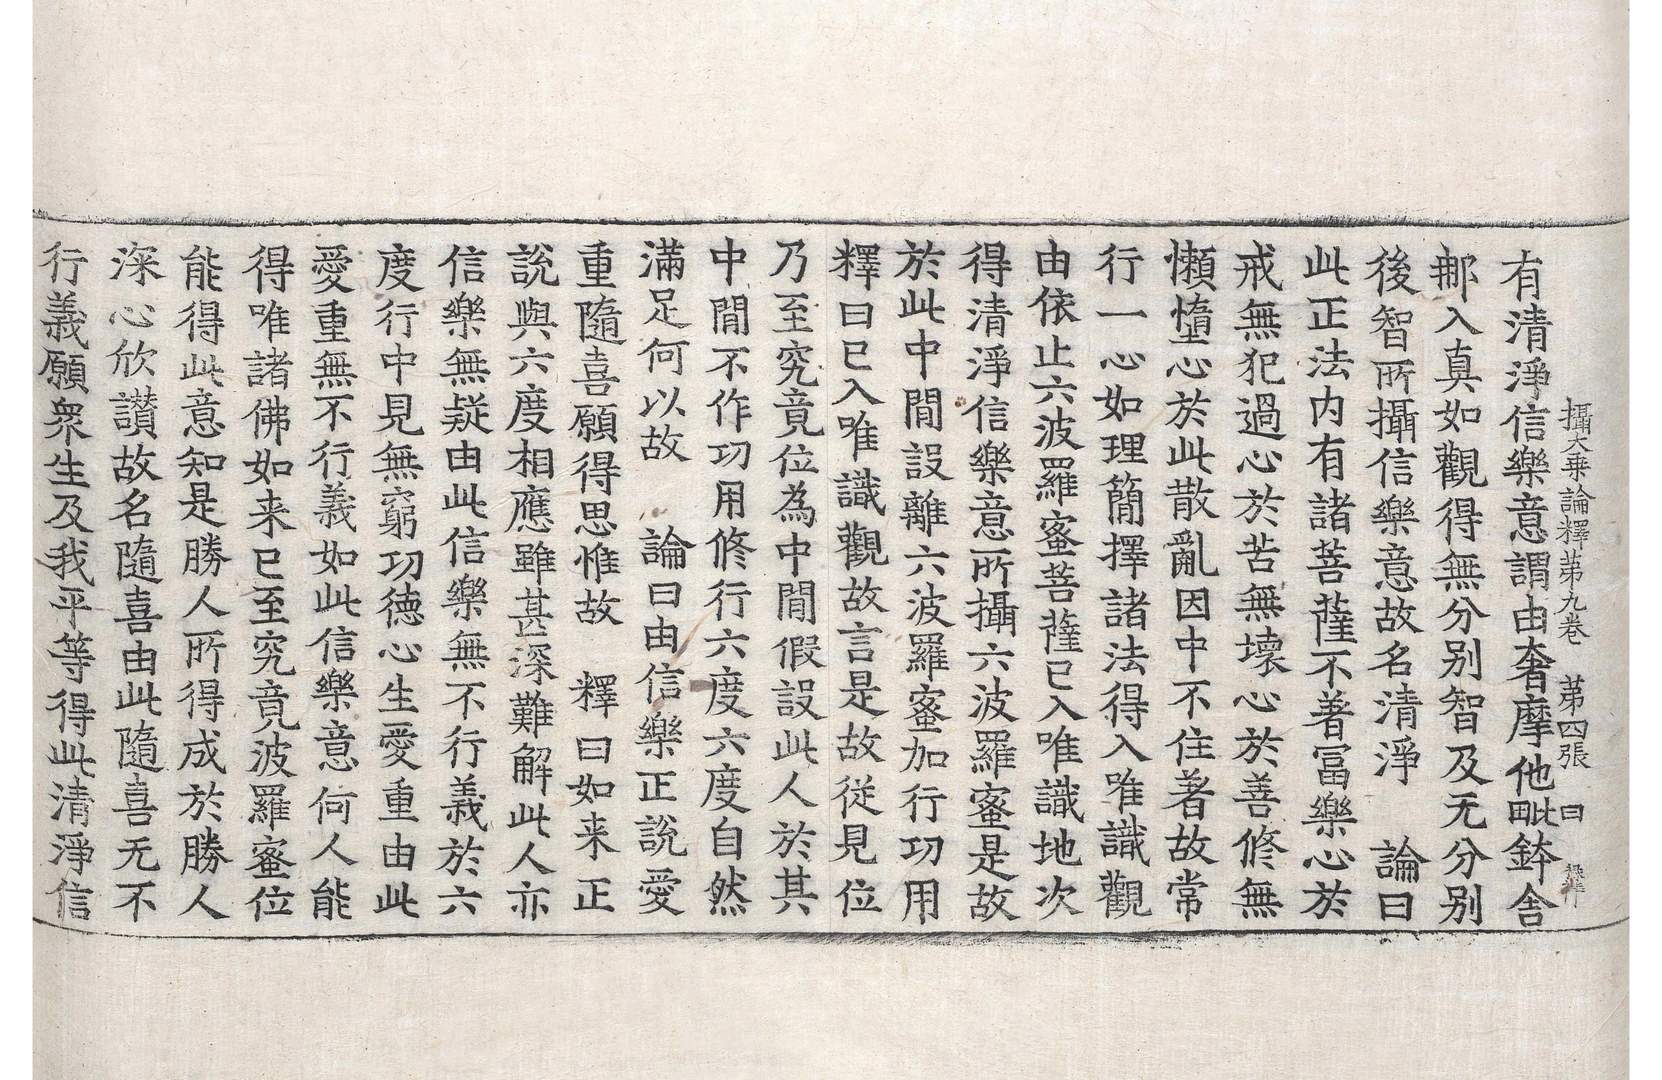 攝大乗論釋第九卷　第四張　曰
有清淨信樂意謂由奢摩他毗鉢舍
那入真如觀得無分別智及无分別
後智所攝信樂意故名清淨　論曰
此正法内有諸菩薩不著冨樂心於
戒無犯過心於苦無壊心於善修無
懶憜心於此散亂因中不住著故常
行一心如理簡擇諸法得入唯識觀
由依止六波羅蜜菩薩已入唯識地次
得清淨信樂意所攝六波羅蜜是故
於此中間設離六波羅蜜加行功用
釋曰已入唯識觀故言是故從見位
乃至究竟位為中間假設此人於其
中間不作功用修行六度六度自然
滿足何以故　論曰由信樂正說愛
重隨喜願得思惟故　釋曰如来正
說與六度相應雖甚深難解此人亦
信樂無疑由此信樂無不行義於六
度行中見無窮功德心生愛重由此
愛重無不行義如此信樂意何人能
得唯諸佛如来已至究竟波羅蜜位
能得此意知是勝人所得成於勝人
深心欣讃故名隨喜由此隨喜无不
行義願衆生及我平等得此清淨信